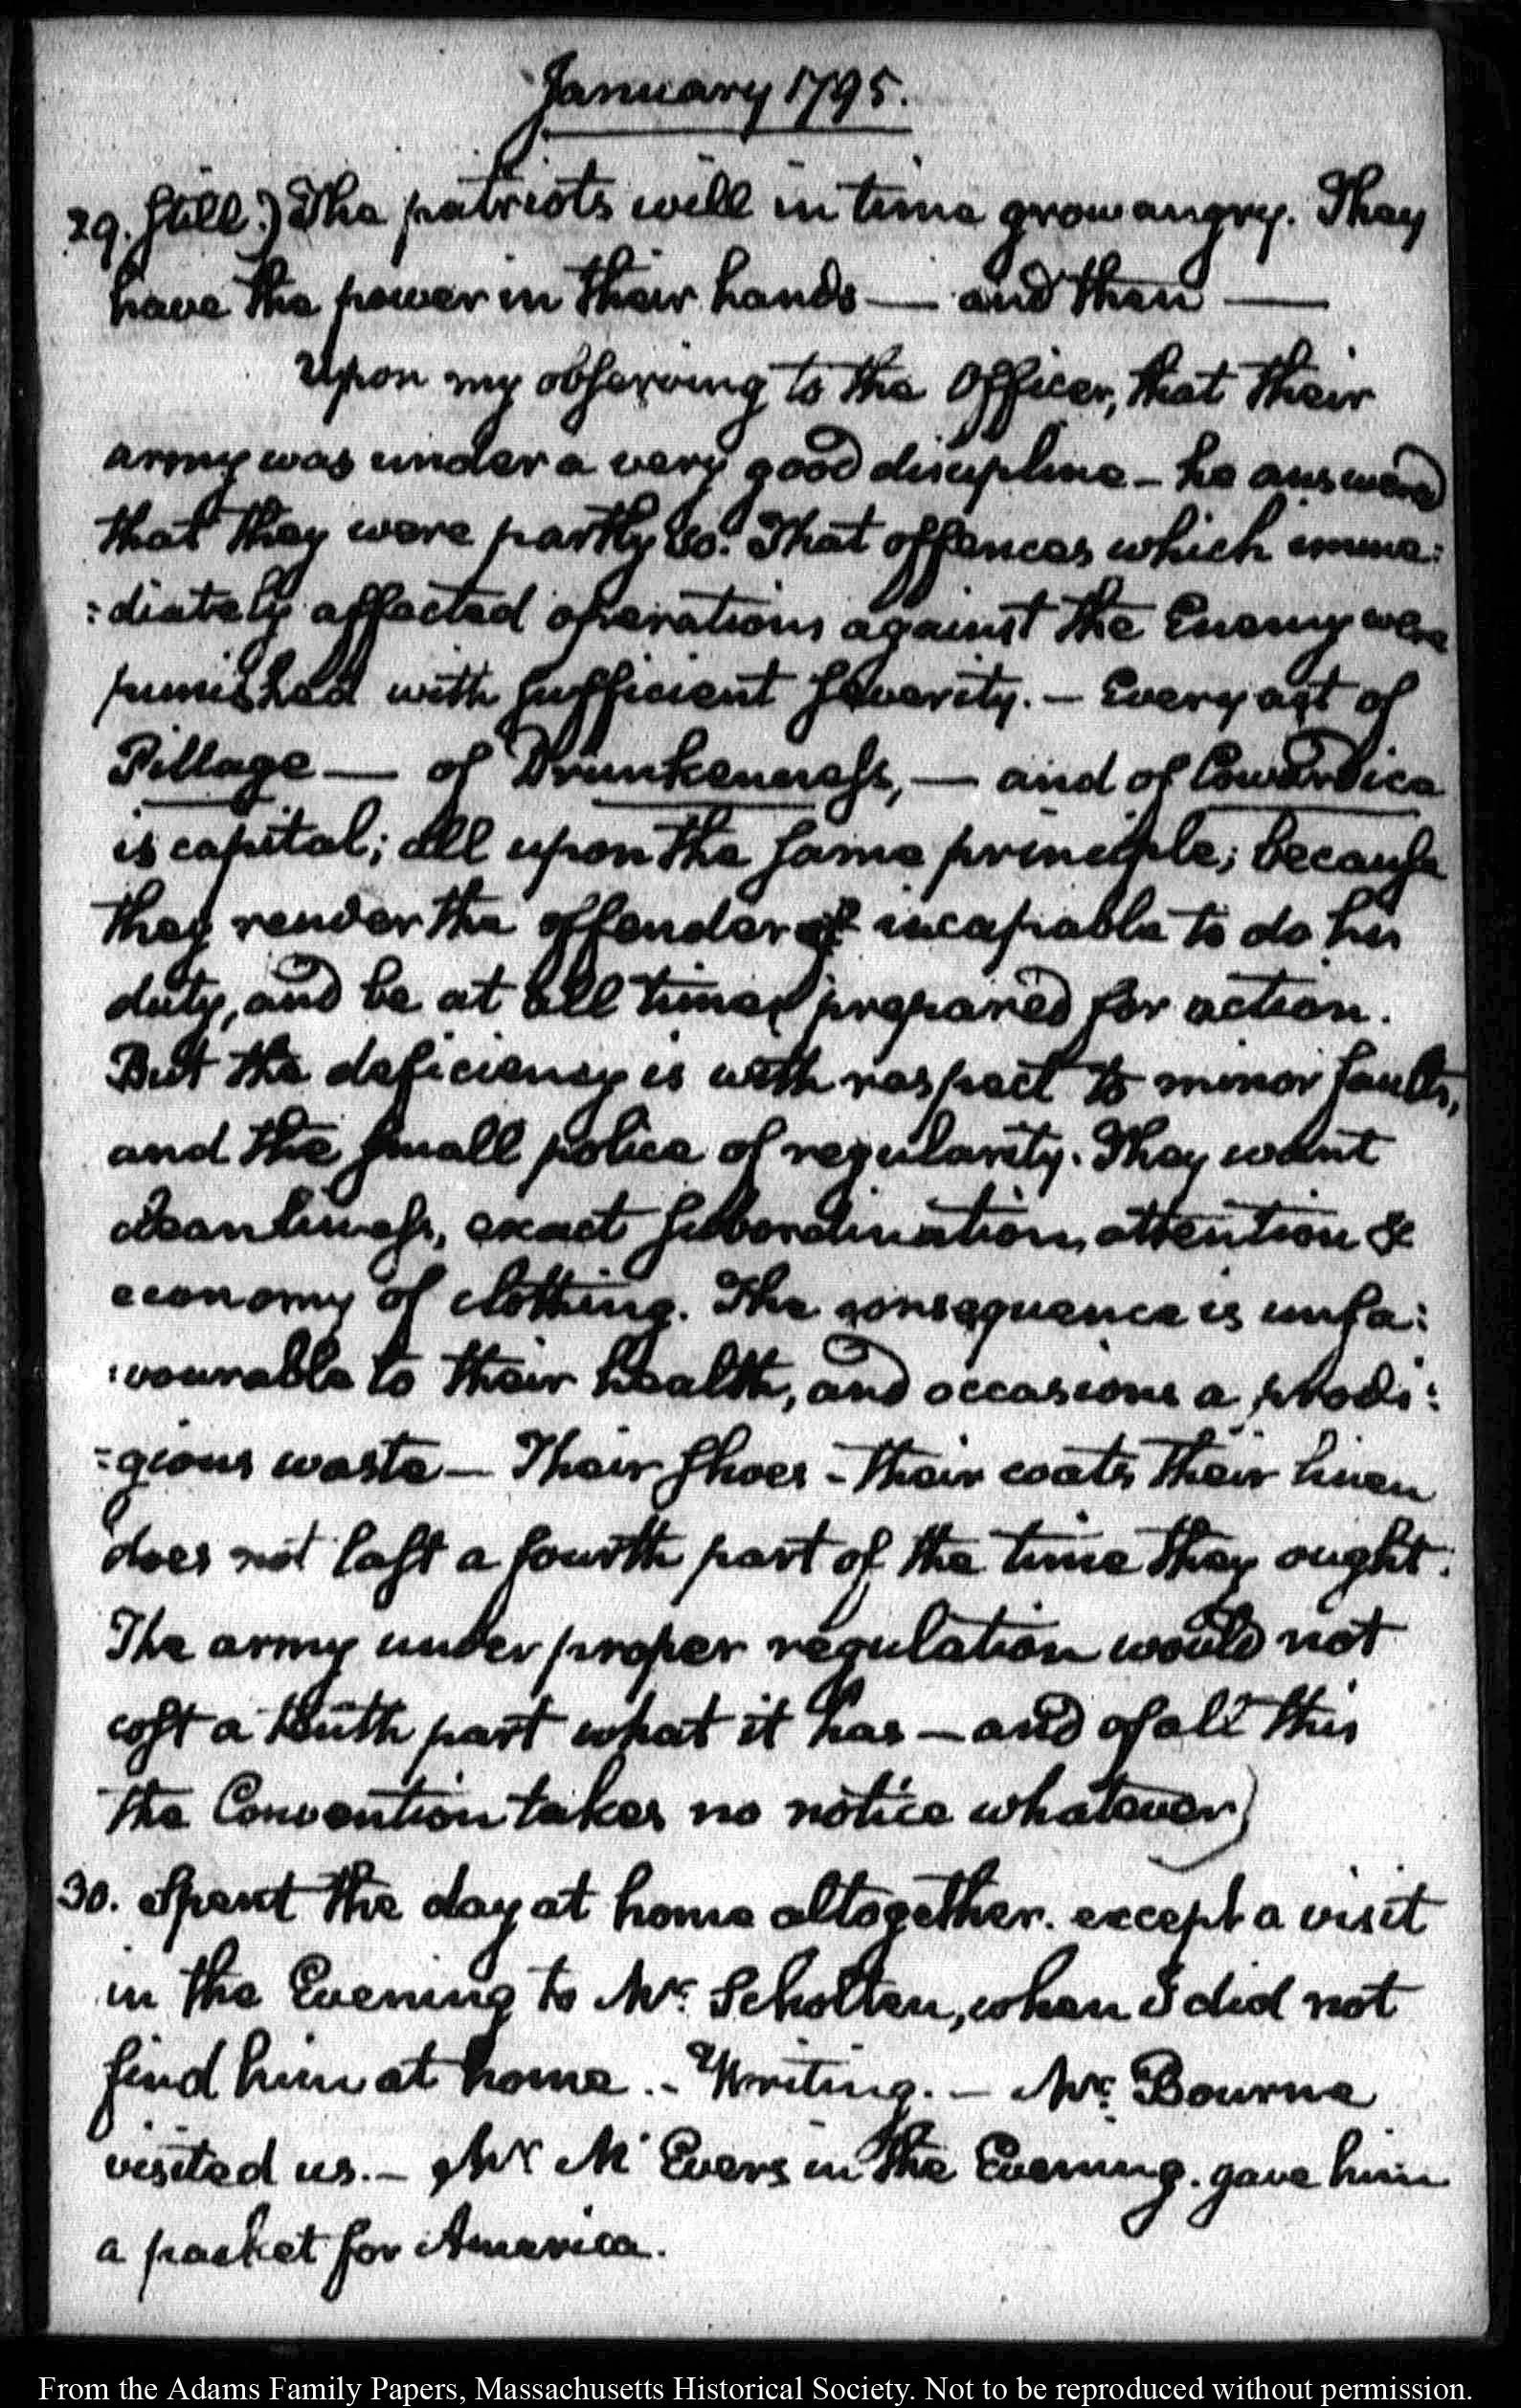 January 1795.
29. still.) The patriots will in time grow angry. They
have the power in their hands — and then —
Upon my observing to the Officer, that their
army was under a very good discipline - he answered
that they were partly so. That offences which imme:
:diately affected operations against the Enemy were
punished with sufficient severity. - Every act of
Pillage — of Drunkenness, — and of Cowardice
is capital; all upon the same principle; because
they render the offender incapable to do his
duty, and be at all times prepared for action.
But the deficiency is with respect to minor faults,
and the small police of regularity. They want
cleanliness, exact subordination, attention &
economy of clothing. The consequence is unfa:
:vourable to their health, and occasions a prodi:
:gious waste — Their shoes - their coats their linen
does not last a fourth part of the time they ought.
The army under proper regulation would not
cost a tenth part what it has — and of all this
the Convention takes no notice whatever)
30. Spent the day at home altogether. except a visit
in the Evening to Mr. Scholten, when I did not
find him at home. - Writing. - Mr. Bourne
visited us. - Mr McEvers in the Evening. gave him
a packet for America.
From the Adams Family Papers, Massachusetts Historical Society. Not to be reproduced without permission.